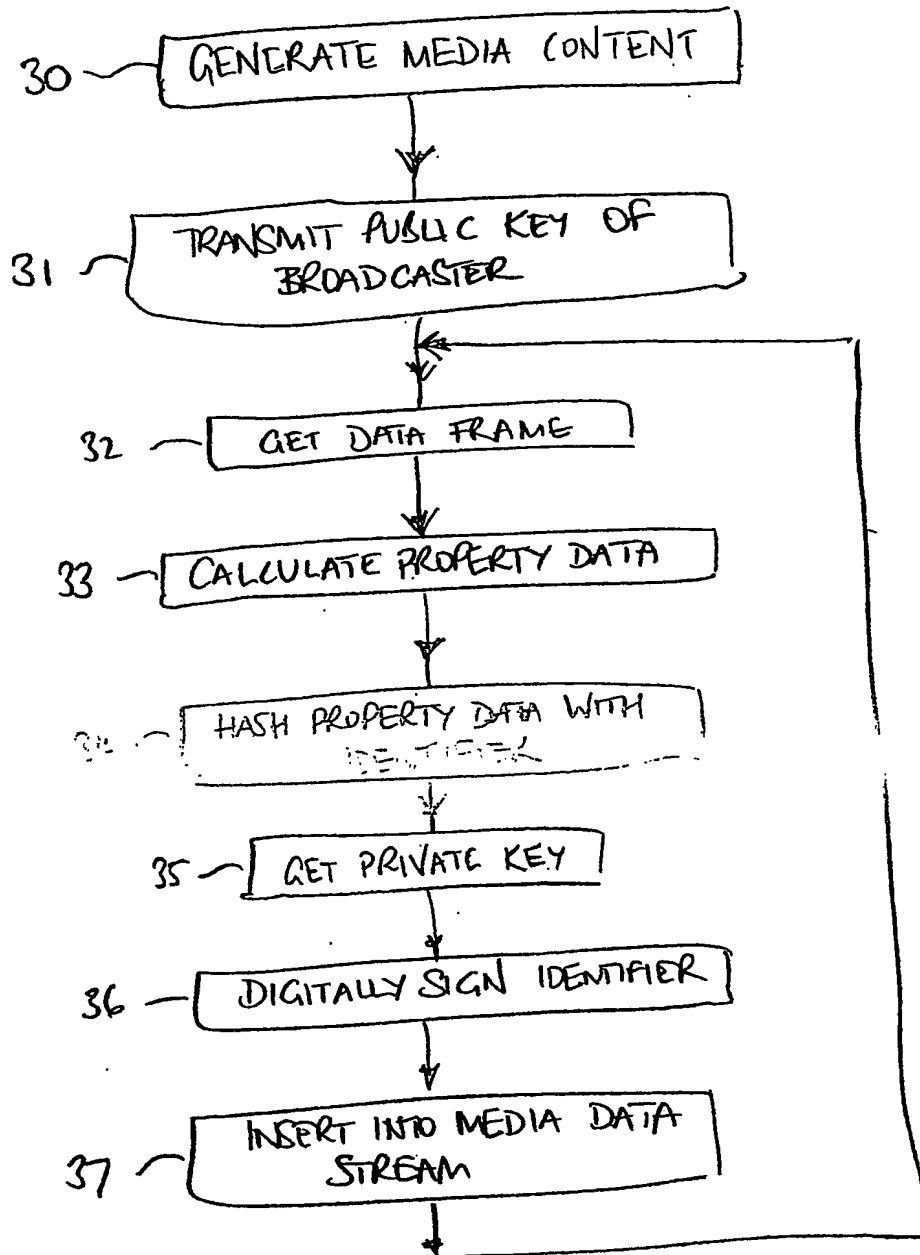 30 GENERATE MEDIA CONTENT
31 TRANSMIT PUBLIC KEY OF
BROADCASTER
32 GET DATA FRAME
33 CALCULATE PROPERTY DATA
HASH PROPERTY DATA WITH
IDENTIFIER
35 GET PRIVATE KEY
36 DIGITALLY SIGN IDENTIFIER
37 INSERT INTO MEDIA DATA
STREAM